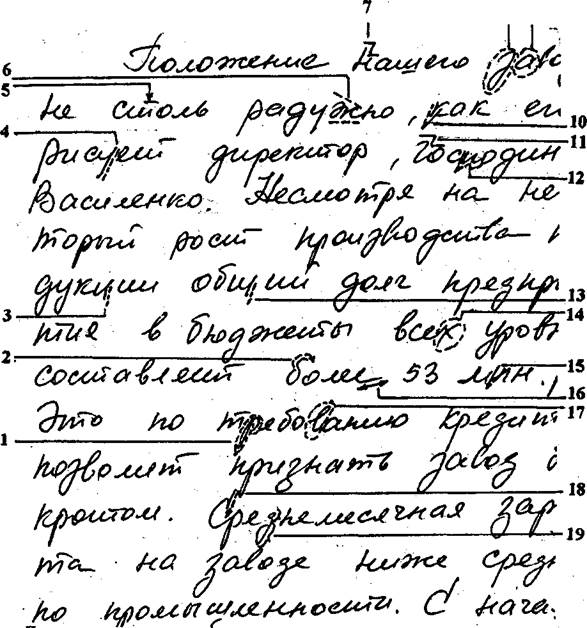 7
Положение нашего заво
6
5 не столь радужно, как ег 10
4 11
рисует директор, господин 12
Василенко. Несмотря на не
торый рост производства
дукции общий долг предпр 13
3 14
тие в бюджеты всех уров
2 15
составляет более 53 млн. 16
17
Это по требованию кредит
1
позволит признать завод
18
кротом. Среднемесячная зар
19
та на заводе ниже средн
по промышленности. С нача